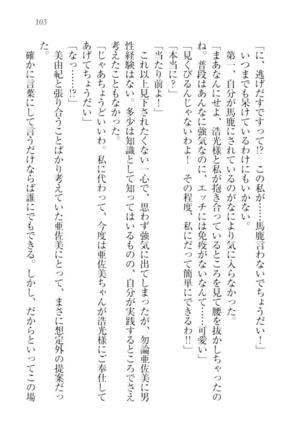 103
「に、逃げだすですって!? この私が……馬鹿言わないでちょうだい！」
いつまでも呆けているわけにもいかない。
第一、自分が馬鹿にされているのがなにより気に入らなかった。
「まあなんにせよ、浩光様と私が抱き合っているところを見て腰を抜かしちゃったの
ね。普段はあんなに強気なのに、エッチには免疫がないなんて……可愛い」
「見くびるんじゃないわよ！ その程度、私にだって簡単にできるわ!!」
「本当に？」
「当たり前よ！」
これ以上見下されたくない一心で、思わず強気に出てしまったが、勿論亜佐美に男
性経験はない。多少は知識として知ってはいるものの、自分が実践するところでさえ
考えたこともなかった。
「じゃあちょうどいいわ。私に代わって、今度は亜佐美ちゃんが浩光様にご奉仕して
あげてちょうだい」
「なっ……!?」
美由紀と張り合うことばかり考えていた亜佐美にとって、まさに想定外の提案だっ
た。
確かに言葉にして言うだけならば誰にでもできる。しかし、だからといってこの場